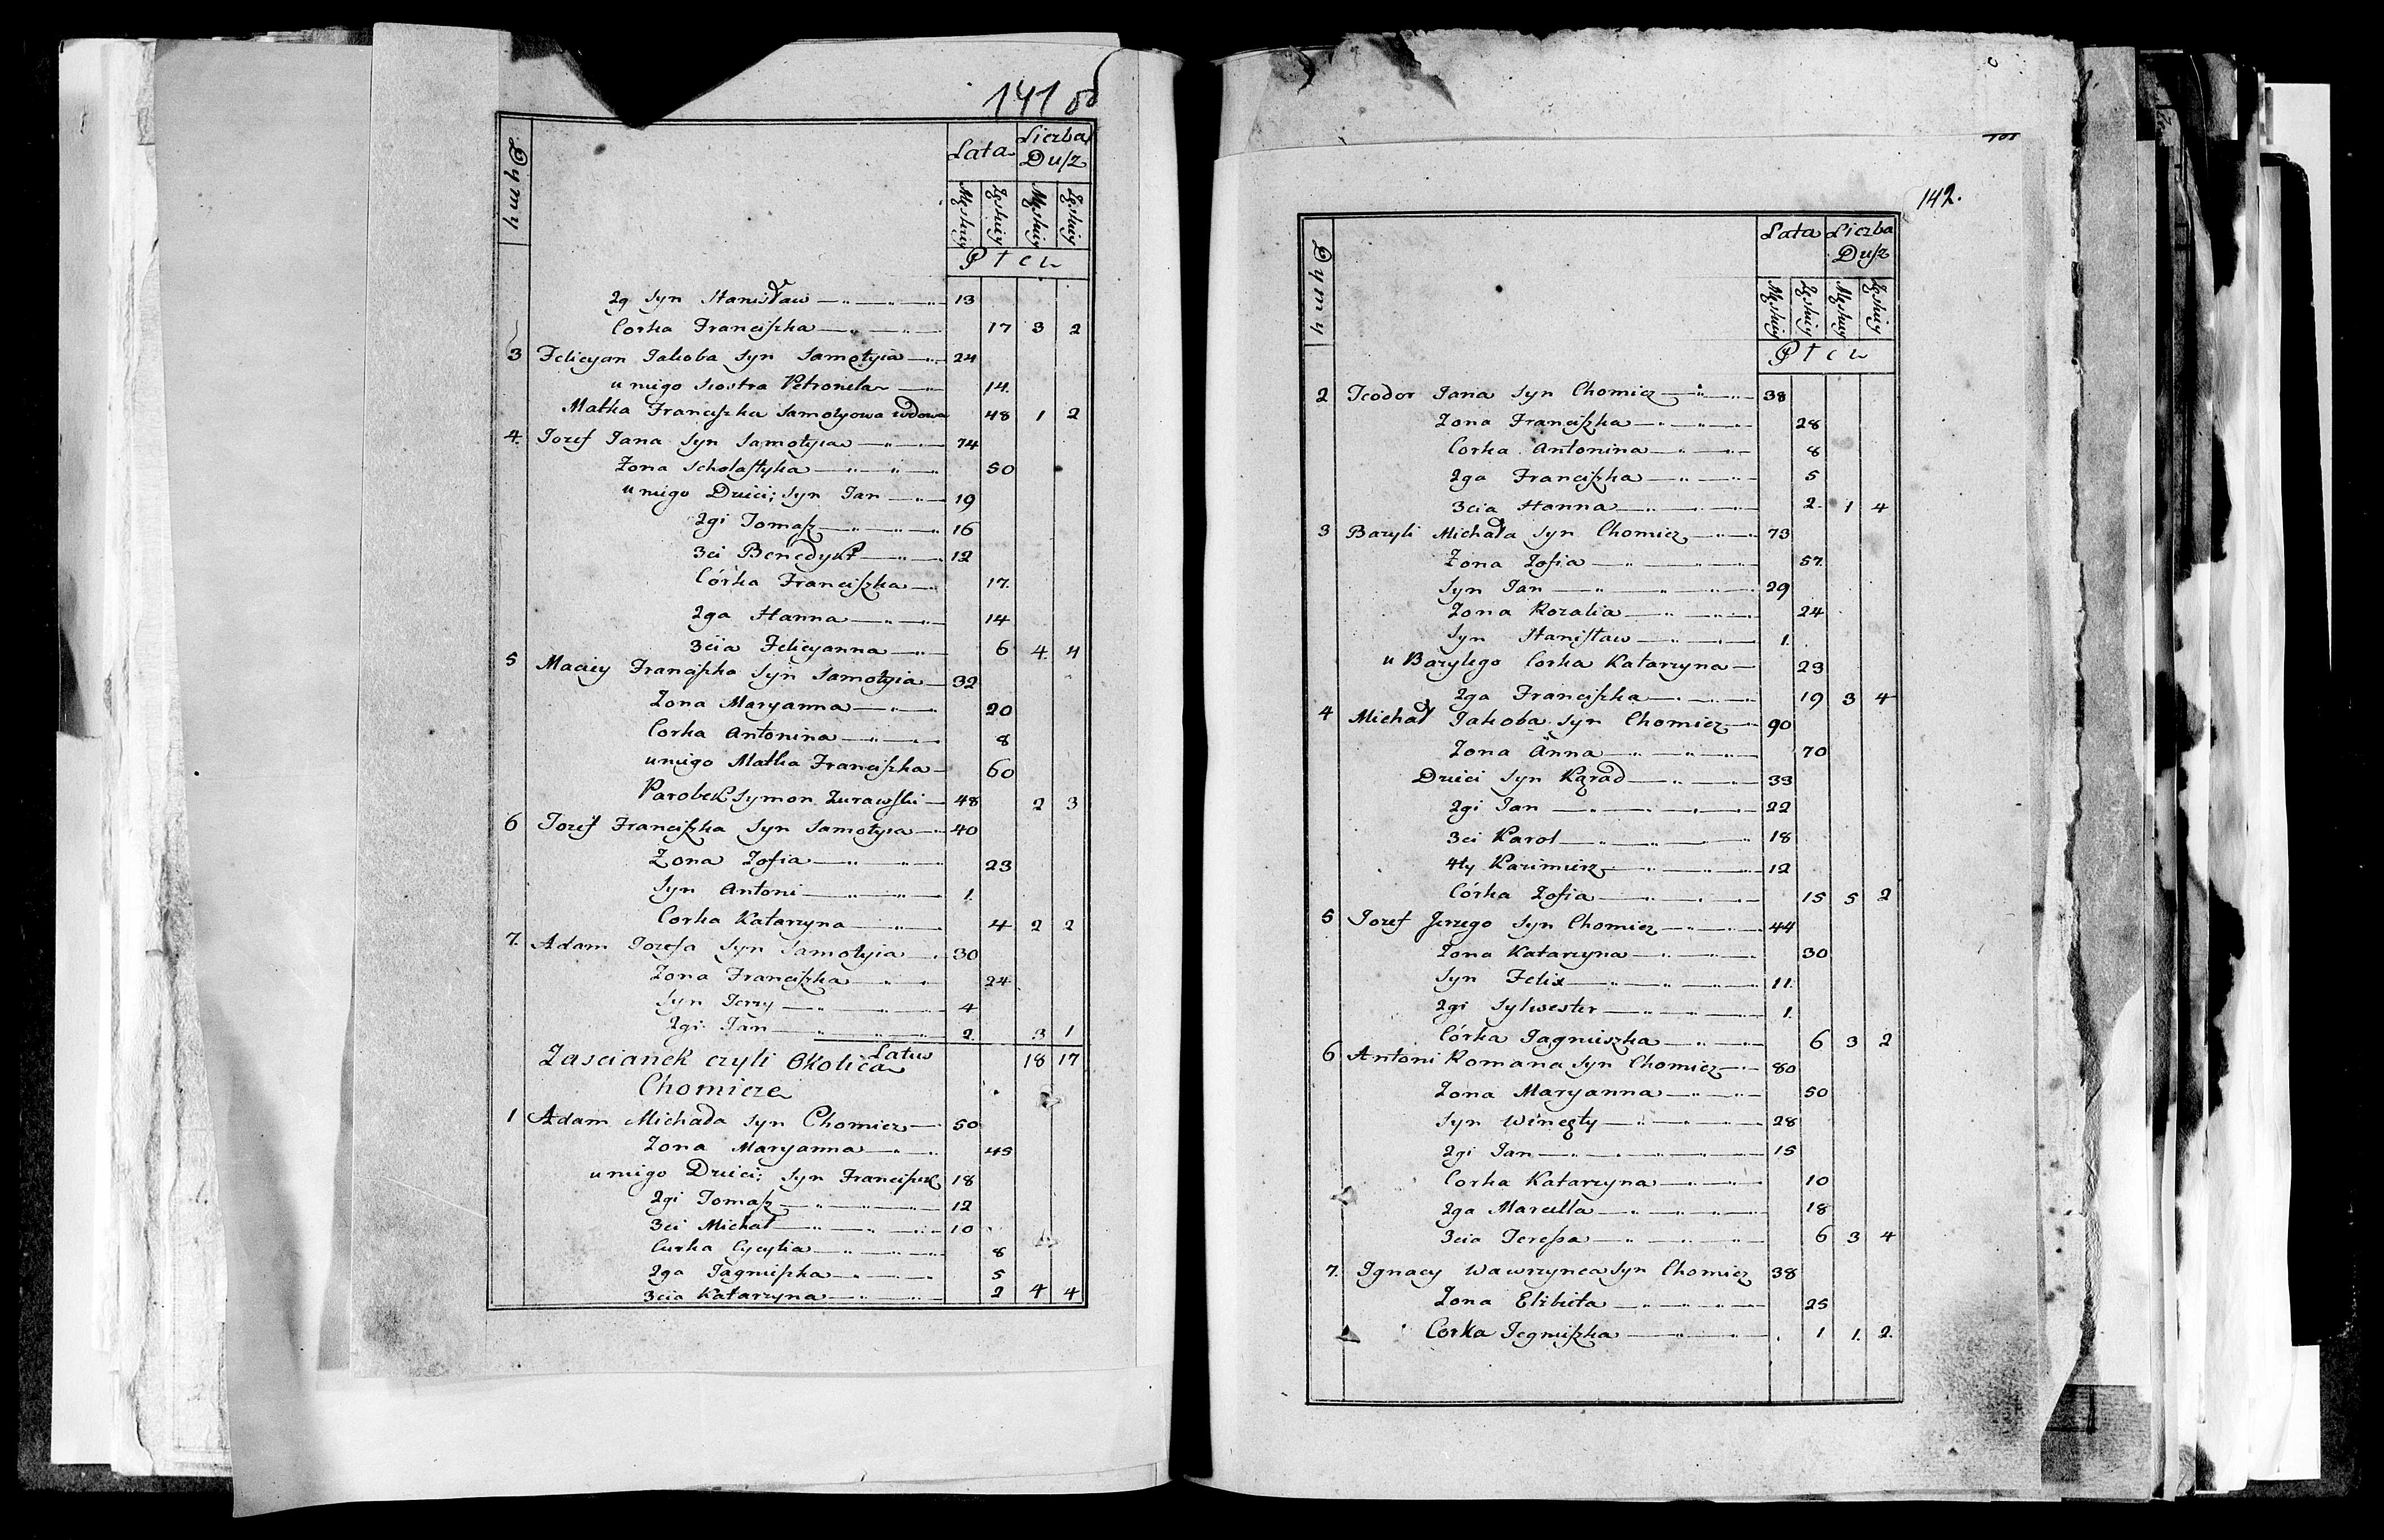 141 od
Dymy Lata Liczba Dusz
Męskiey Żęskiey Męskiey Żęskiey
Płeć
2g Syn Stanisław 13
Corka Franciszka 17 3 2
3 Felicyan Jakoba Syn Samotyia 24
u niego Siostra Petronela 14.
Matka Franciszka Samotyowa wdowa 48 1 2
4. Jozef Jana Syn Samotyia 74
Żona Scholastyka 50
u niego Dzieci; Syn Jan 19
2gi Tomasz 16
3ci Benedykt 12
Córka Franciszka 17.
2ga Hanna 14
3cia Felicyanna 6 4. 4
5 Maciey Franciszka Syn Samotyia 32
Zona Maryanna 20
Corka Antonina 8
u niego Matka Franciszka 60
Parobek Symon Zurawski 48 2 3
6 Jozef Franciszka Syn Samotyia 40
Zona Zofia 23
Syn Antoni 1.
Corka Katarzyna 4 2 2
7. Adam Jozefa Syn Samotyia 30
Zona Franciszka 24
Syn Jerzy 4
2gi Jan 2. 3 1
Latus 18 17
Zascianek czyli Okolica
Chomicze
1 Adam Michała Syn Chomicz 50
Zona Maryanna 45
u niego Dzieci; Syn Franciszek 18
2gi Tomasz 12
3ci Michał 10
Curka Cycylia 8
2ga Jagniszka 5
3cia Katarzyna 2 4 4
142.
Dymy Lata Liczba Dusz
Męskiey Żęskiey Męskiey Żęskiey
Płeć
2 Teodor Jana Syn Chomicz 38
Zona Franciszka 28
Corka Antonina 8
2ga Franciszka 5
3cia Hanna 2. 1 4
3 Bazyli Michała Syn Chomicz 73
Zona Zofia 57.
Syn Jan 29
Zona Rozalia 24
Syn Stanisław 1.
u Bazylego Corka Katarzyna 23
2ga Franciszka 19 3 4
4 Michał Jakoba Syn Chomicz 90
Zona Anna 70
Dzieci Syn Kąrad 33
2gi Jan 22
3ci Karol 18
4ty Kazimierz 12
Córka Zofia 15 5 2
5 Jozef Jerzego Syn Chomicz 44
Zona Katarzyna 30
Syn Felix 11.
2gi Sylwester 1.
Córka Jagniszka 6 3 2
6 Antoni Romana Syn Chomicz 80
Zona Maryanna 50
Syn Winczty 28
2gi Jan 15
Corka Katarzyna 10
2ga Marcella 18
3cia Teressa 6 3 4
7. Ignacy Wawrzynca Syn Chomicz 38
Zona Elżbieta 25
Corka Jegniszka 1 1. 2.